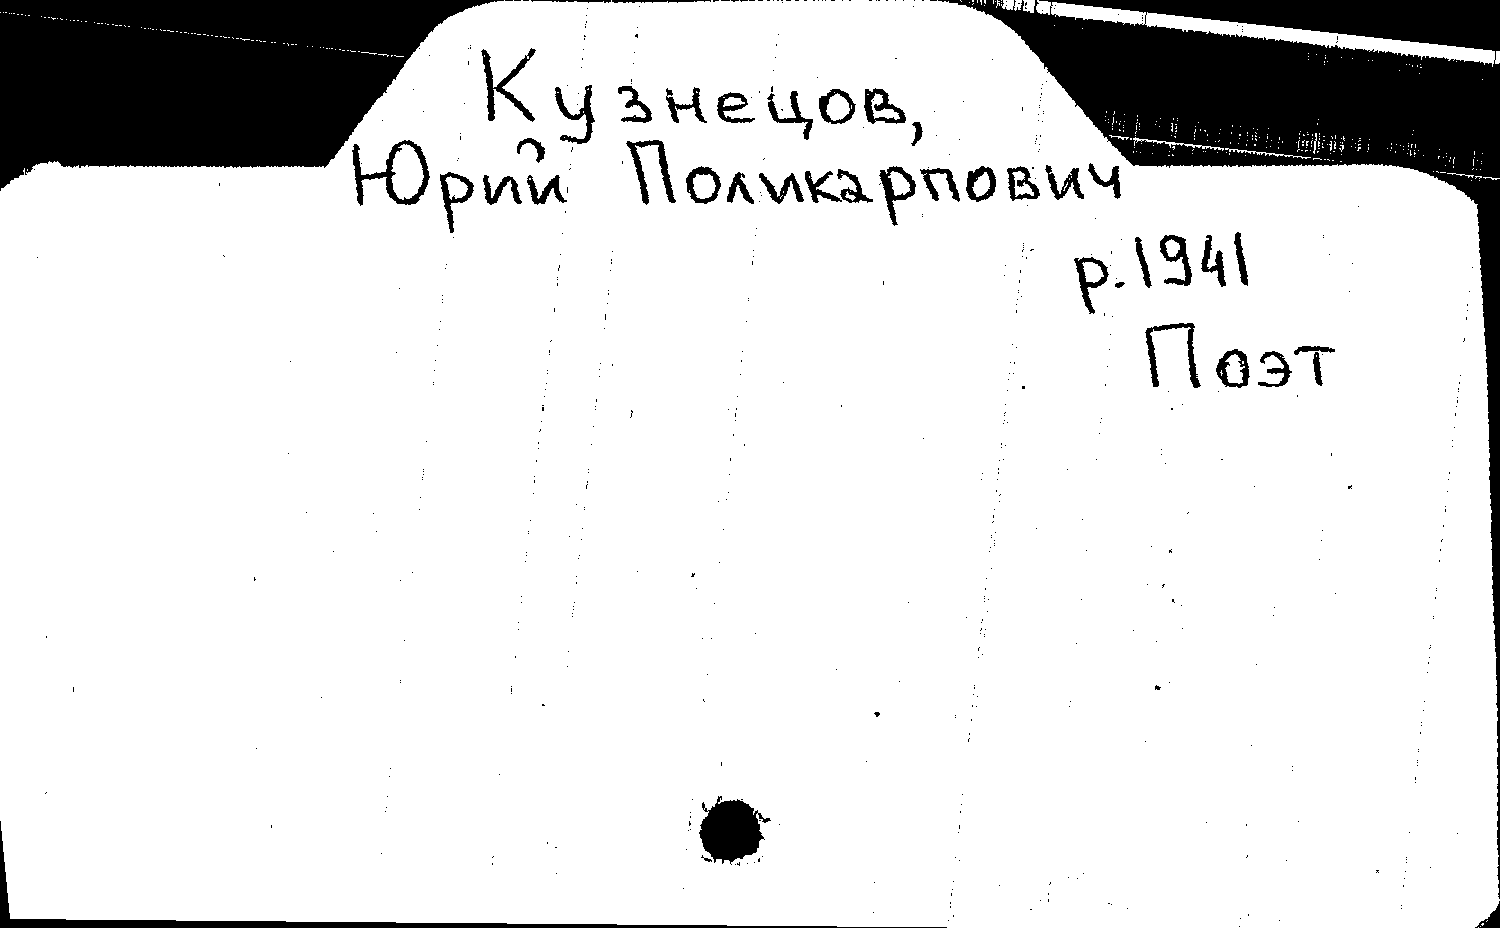 Кузнецов,
Юрий Поликарпович
р. 1941
Поэт